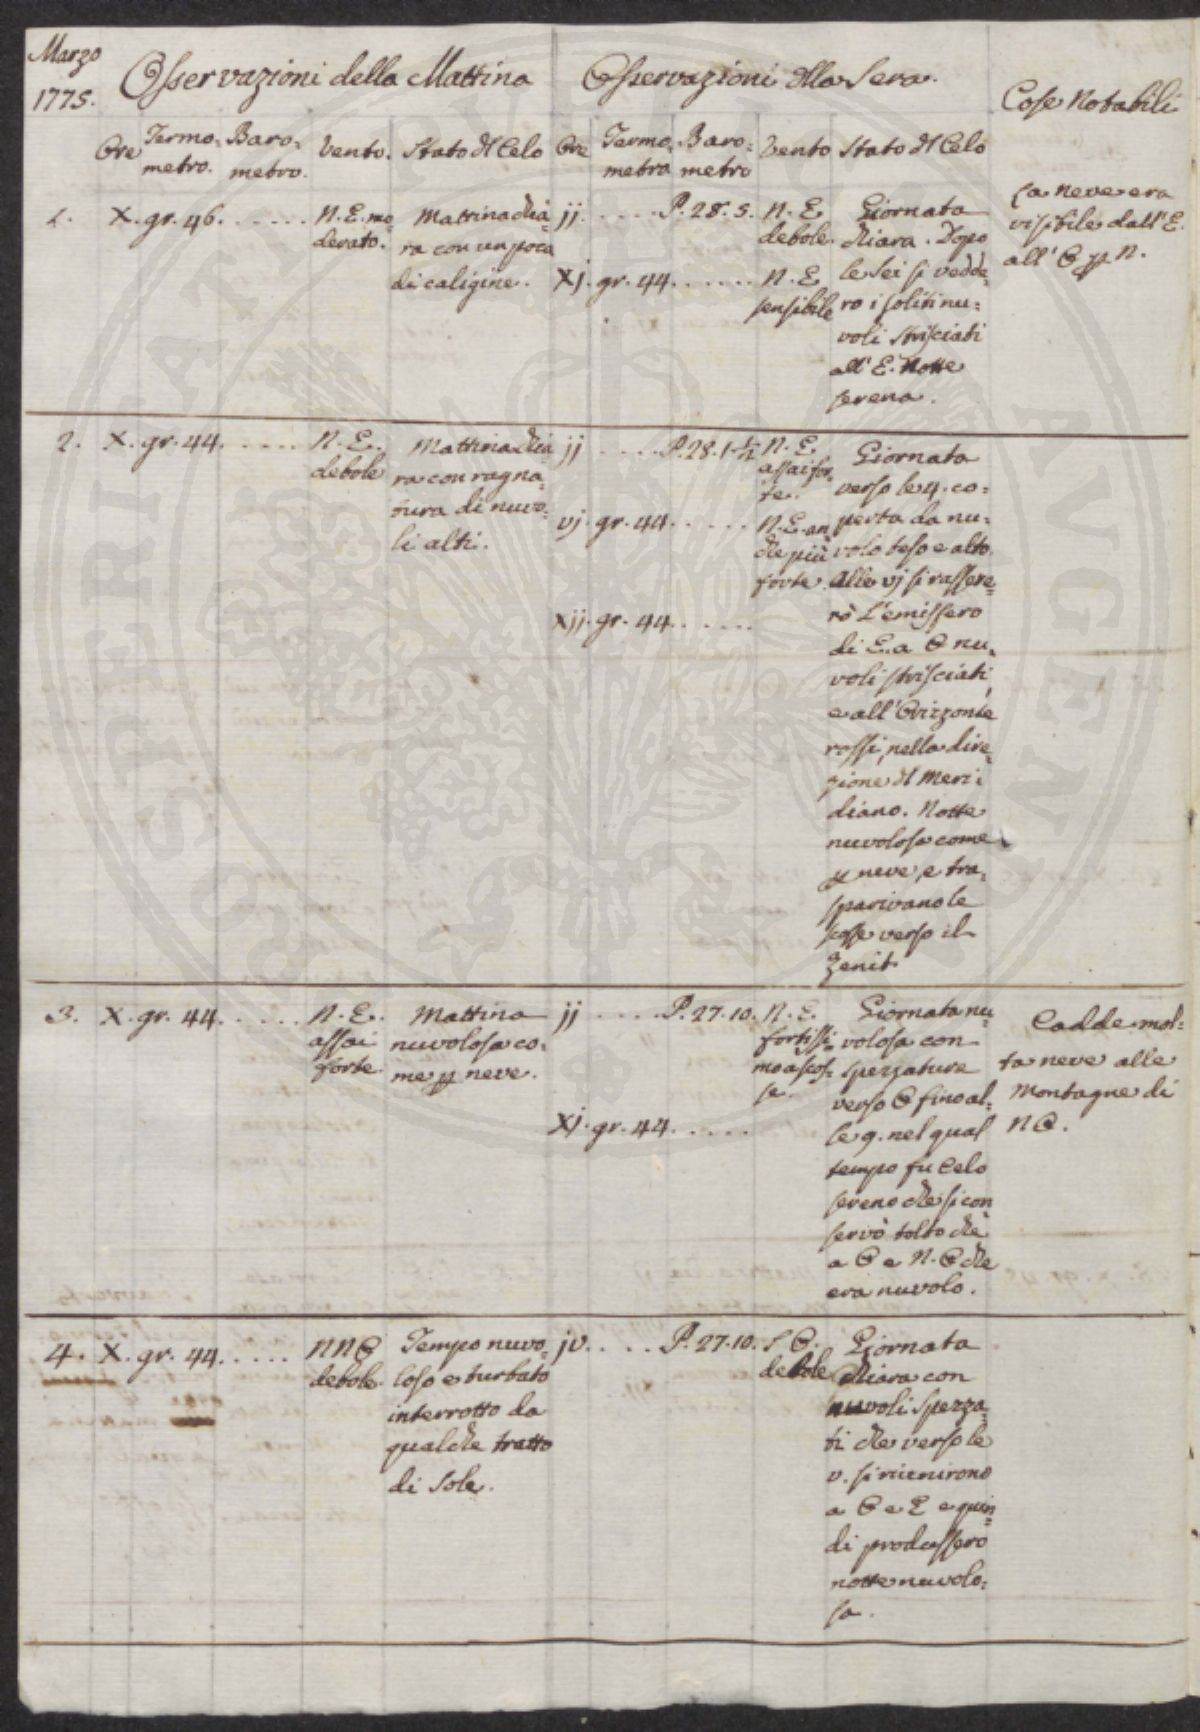 Marzo
1775.
Osservazioni della Mattina
Osservazioni dlla Sera.
Cose Notabili
Ore
Termo=
metro.
Baro=
metro.
Vento.
Stato dl Celo
Ore
Termo=
metro
Baro=
metro
Vento
Stato dl Celo
1.
X. gr. 46. . . . . . .
N. E. mo=
derato.
Mattina chia=
ra con un poca
di caligine.
jj. . . . . P. 28. 5.
N. E
debole.
Xj. gr. 44. . . . . . .
N. E
sensibile
Giornata
chiara. Dopo
le sei si vedde=
ro i soliti nu=
voli strisciati
all' E. Notte
serena.
La neve era
visibile dall' E.
all' O p N.
2.
X. gr. 44. . . . . .
N. E.
debole
Mattina chia
ra con ragna=
tura di nuvo=
li alti.
jj . . . . P. 28. 1 1/2
N. E.
assai for=
te.
vj. gr. 44. . . . . .
N. E. an
che più
forte.
Xjj. gr. 44. . . . . .
Giornata
verso le 4. co=
perta da nu=
volo teso e alto.
Alle vj si rassere=
nò l'emisfero
di E. a O nu=
voli strisciati,
e all' Orizzonte
rossi, nella dire=
zione dl Meri=
diano. Notte
nuvolosa come
p neve, e tra=
sparivano le
verso il
Zenit
3.
X. gr. 44. . . . . .
N. E.
assai
forte.
Mattina
nuvolosa co=
me p neve.
jj . . . . P. 27. 10.
N. E.
fortissi=
mo a scos=
se.
Xj. gr. 44. . . . . .
Giornata nu=
volosa con
spezzature
verso O fino al=
le 9. nel qual
tempo fu Celo
sereno che si con
servò tolto che
a O e N. O che
era nuvolo.
Cadde mol=
ta neve alle
Montagne di
N O.
4.
X. gr. 44. . . . . .
N N O
debole.
Tempo nuvo=
loso e turbato
interrotto da
qualche tratto
di Sole.
jv. . . . P. 27. 10.
S O.
debole
Giornata
chiara con
nuvoli spezza=
ti che verso le
v. si riunirono
a O e E e quin=
di produssero
notte nuvolo=
sa.